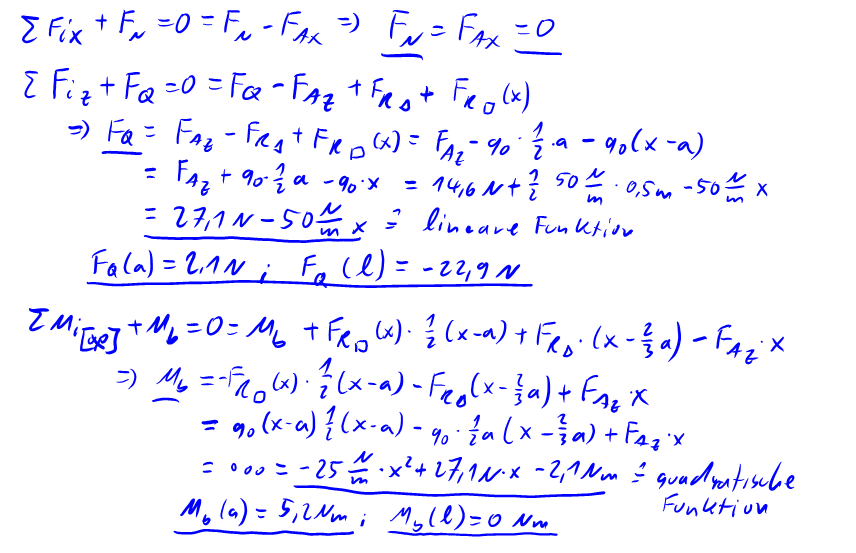 Σ F_ix + F_N = 0 = F_N - F_AX => F_N = F_AX = 0
Σ F_iz + F_Q = 0 = F_Q - F_AZ + F_R△ + F_R□(x)
=> F_Q = F_AZ - F_R△ + F_R□(x) = F_AZ - q₀ · 1/2 · a - q₀(x-a)
= F_AZ + q₀ · 1/2 a - q₀ · x = 14,6 N + 1/2 50 N/m · 0,5m - 50 N/m x
= 27,1 N - 50 N/m x ≙ lineare Funktion
F_Q(a) = 2,1 N ; F_Q(l) = -22,9 N
Σ M_i[φ] + M_b = 0 = M_b + F_R□(x) · 1/2 (x-a) + F_R△ · (x - 2/3 a) - F_AZ · x
=> M_b = -F_R□(x) · 1/2 (x-a) - F_R△(x - 2/3 a) + F_AZ · x
= q₀(x-a) 1/2 (x-a) - q₀ · 1/2 a (x - 2/3 a) + F_AZ · x
= ... = -25 N/m · x² + 27,1 N · x - 2,1 Nm ≙ quadratische
Funktion
M_b(a) = 5,2 Nm ; M_b(l) = 0 Nm